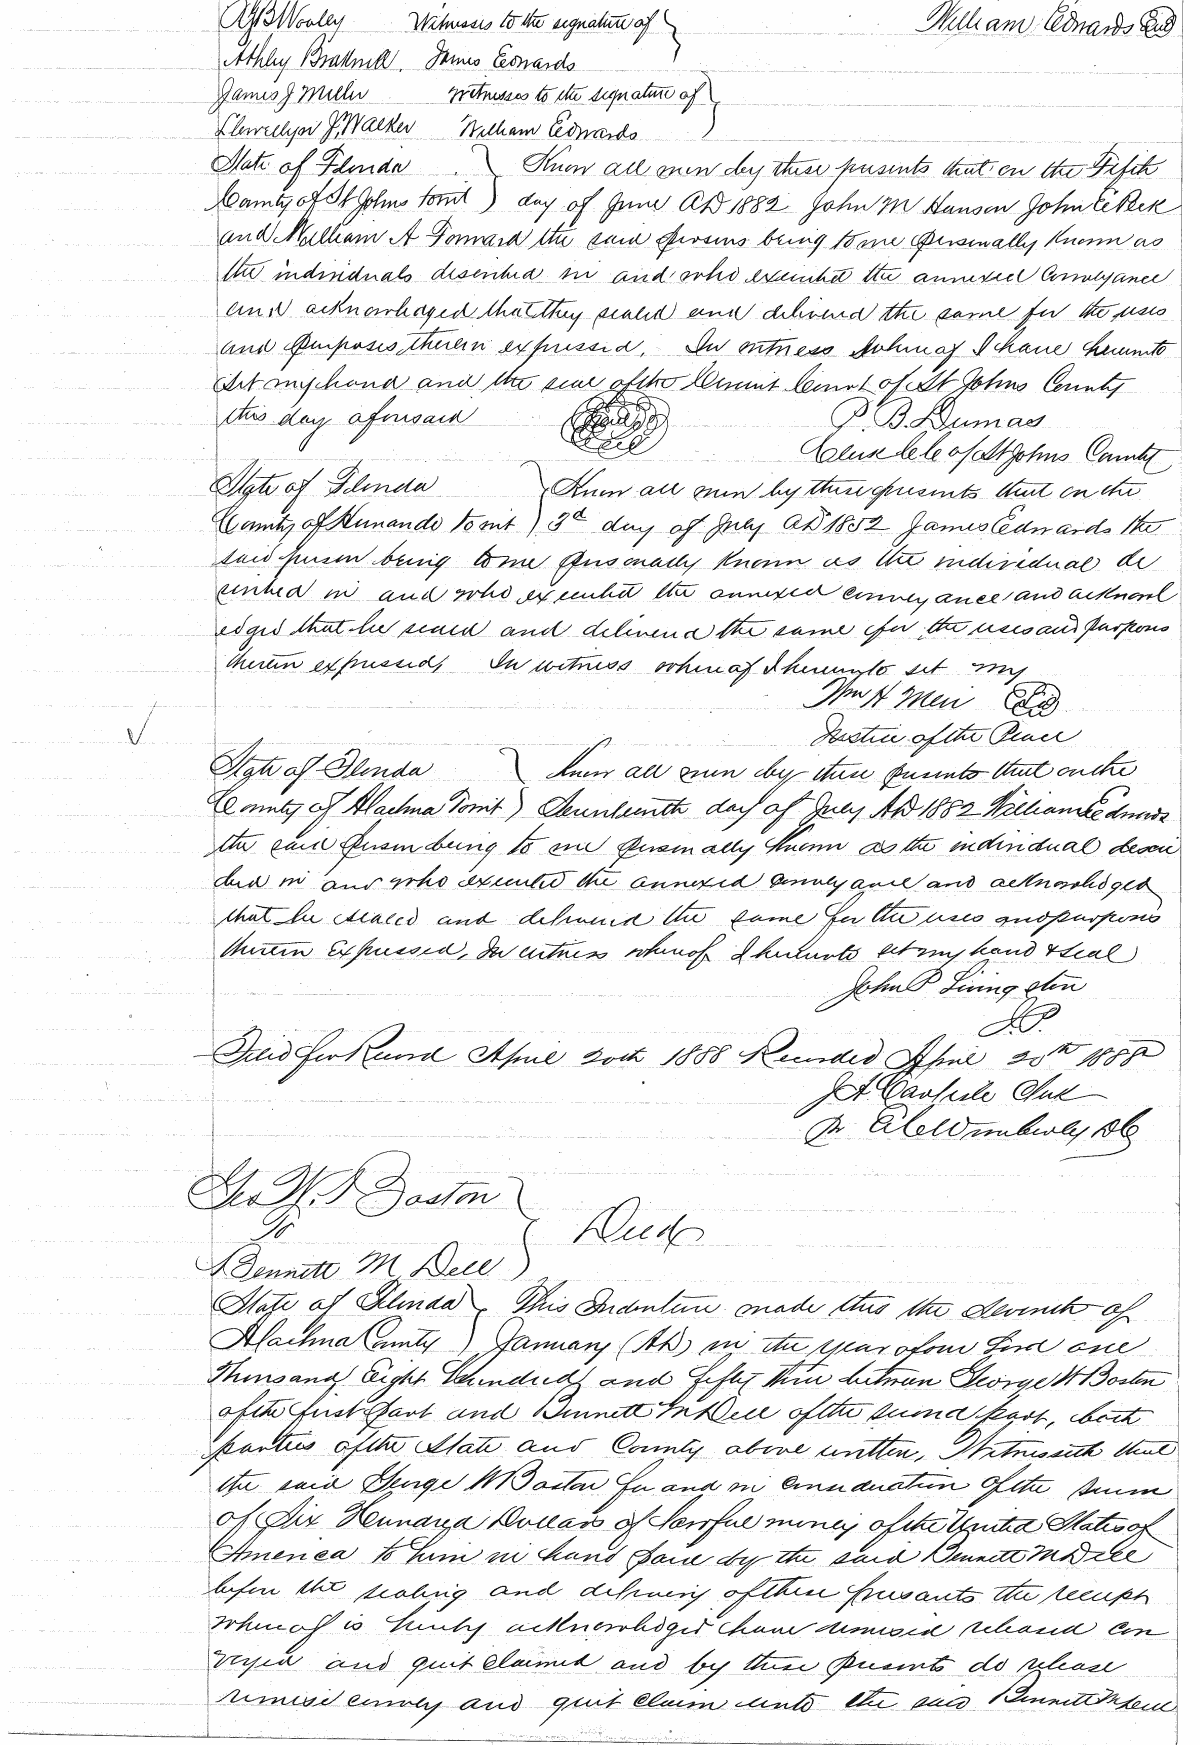 Witnesses to the signature of William Edwards
James Edwards
James J Miller Witnesses to the signature of
Llewellyn J. Walker William Edwards
State of Florida ) Know all men by these presents that on the Fifth
County of St Johns towit ) day of June AD 1882 John M Hanson John C Peck
and William A Forward the said persons being to me personally known as
the individuals described in and who executed the annexed conveyance
and acknowledged that they sealed and delivered the same for the uses
and purposes, therein expressed, In witness whereof I have hereunto
set my hand and the seal of the Circuit Court of St Johns County
this day aforesaid P. B. Dumas
Clerk CC of St Johns County
State of Florida ) Know all men by these presents that on the
County of Hernando towit ) 3d day of July AD 1852 James Edwards the
said person being to me personally known as the individual de
scribed in and who executed the annexed conveyance and acknowl
edged that he sealed and delivered the same for the uses and purposes
therein expressed, In witness whereof I hereunto set my
Wm H
Justice of the Peace
State of Florida ) Know all men by these presents that on the
County of Alachua Towit ) day of July AD 1882 William Edwards
the said person being to me personally known as the individual descri
bed in and who executed the annexed conveyance and acknowledged
that he sealed and delivered the same for the uses and purposes
therein Expressed, In witness whereof I hereunto set my hand & seal
John P Livingston
J.P.
Filed for Record April 20th 1888 Recorded April 20th 1888
J A Carlisle Clk
Pr Wimberly DC
Geo W. Boston
To ) Deed
Bennett M Dell
State of Florida ) This Indenture made this the Seventh of
Alachua County ) January (AD) in the year of our Lord one
Thousand Eight Hundred and fifty three between George W Boston
of the first part and Bennett M Dell of the second part, both
parties of the State and County above written, Witnesseth that
the said George W Boston for and in consideration of the sum
of Six Hundred Dollars of lawful money of the United States of
America to him in hand paid by the said Bennett M Dell
before the sealing and delivery of these presants the receipt
whereof is hereby acknowledged have remised released con
veyed and quit claimed and by these presents do release
remise convey and quit claim unto the said Bennett M Dell